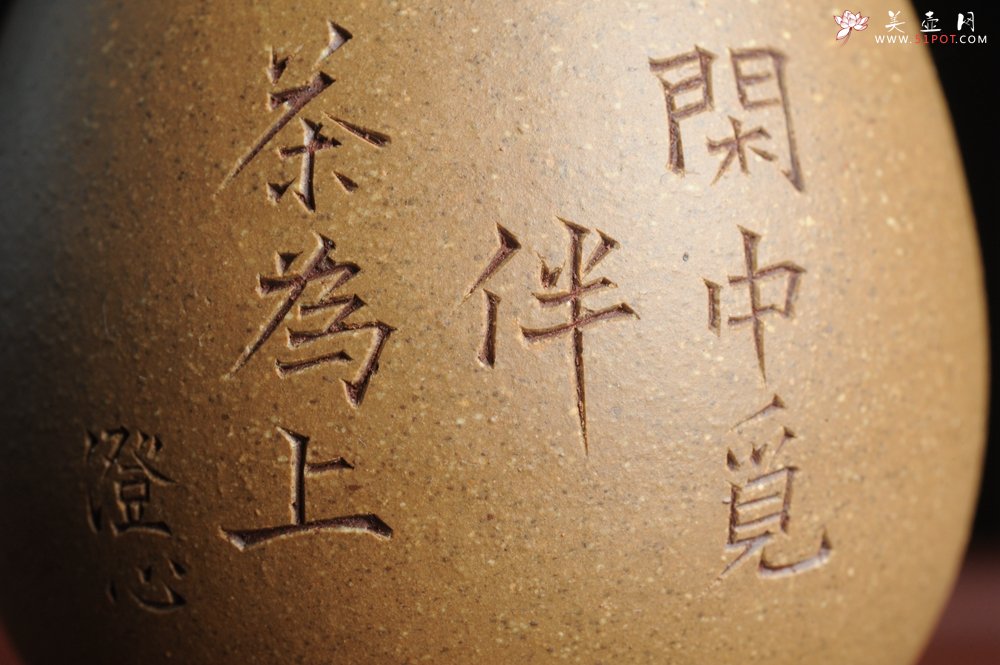 閑中覓
伴
茶為上
澄心
美壺网
WWW.51POT.COM